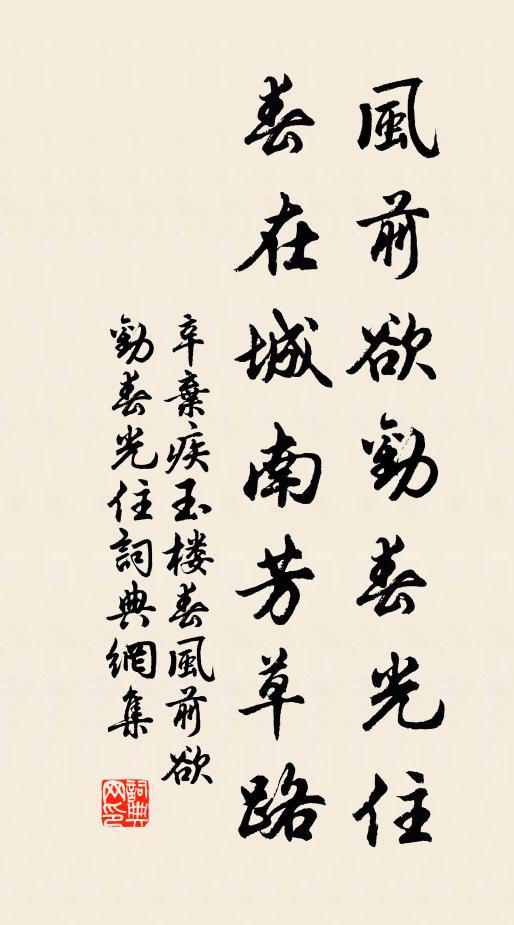 風前欲勸春光住
春在城南芳草路
辛棄疾玉楼春風前欲
勸春光住詞典網集
詞典网印